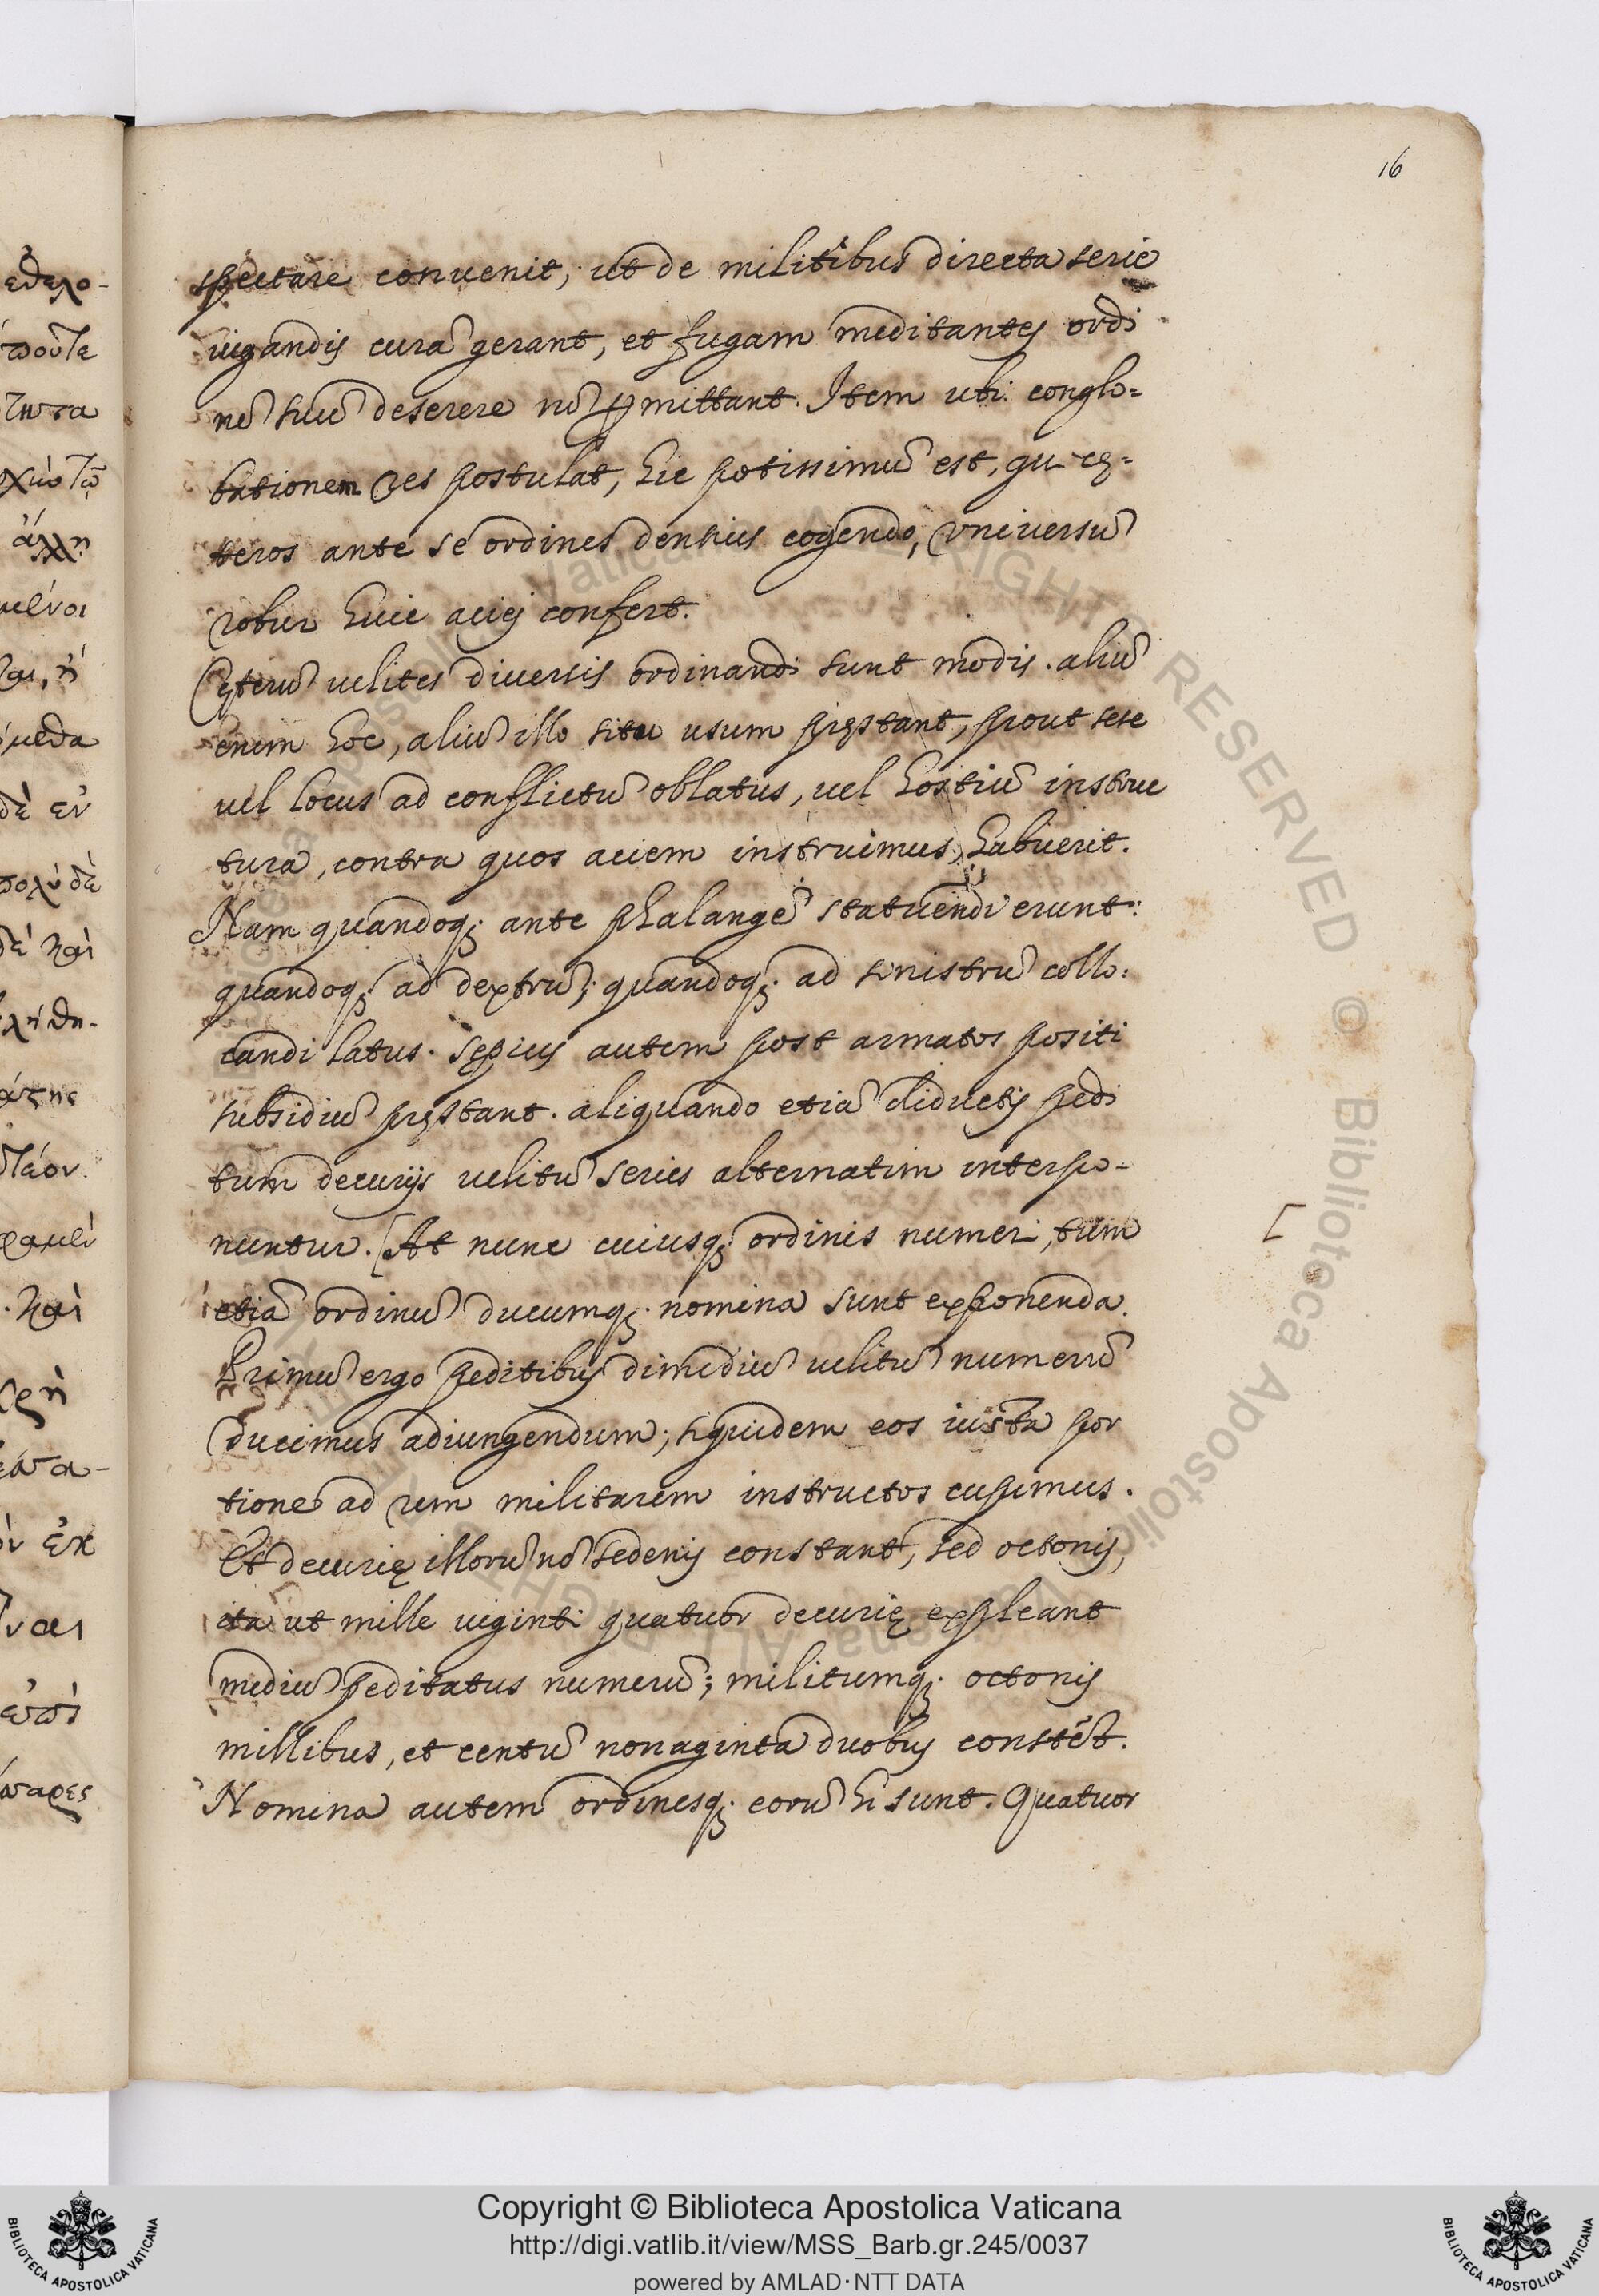 16
spectare conuenit, ut de militibus directa serie
iugandis curã gerant, et fugam meditantes ordi
nẽ suũ deserere nõ ꝑmittant. Item ubi conglo-
bationem res postulat, hic potissimũ est, qui cę-
teros ante se ordines densius cogendo, vniuersũ
robur huic aciei confert.
Cęterũ uelites diuersis ordinandi sunt modis. aliũ
enim hoc, aliũ illo situ usum pręstant, prout sese
uel locus ad conflictũ oblatus, uel hostiũ instruc
tura, contra quos aciem instruimus, habuerit.
Nam quandoq; ante phalangẽ statuendi erunt:
quandoq; ad dextrũ; quandoq; ad sinistrũ collo-
candi latus. sępius autem post armatos positi
subsidiũ pręstant. aliquando etiã diductis pedi
tum decurijs uelitũ series alternatim interpo-
nuntur. [At nunc cuiusq; ordinis numeri, tum
[
etiã ordinũ ducumq; nomina sunt exponenda.
Primũ ergo peditibus dimidiũ uelitũ numerũ
ducimus adiungendum; siquidem eos iusta por
tionẽ ad rem militarem instructos cupimus.
Et decurię illorũ nõ sedenis constant, sed octonis,
ita ut mille uiginti quatuor decurię expleant
mediũ peditatus numerũ; militumq; octonis
millibus, et centũ nonaginta duobus constẽt.
Nomina autem ordinesq; eorũ hi sunt. Quatuor
Copyright © Biblioteca Apostolica Vaticana
http://digi.vatlib.it/view/MSS_Barb.gr.245/0037
powered by AMLAD·NTT DATA
BIBLIOTECA APOSTOLICA VATICANA
BIBLIOTECA APOSTOLICA VATICANA